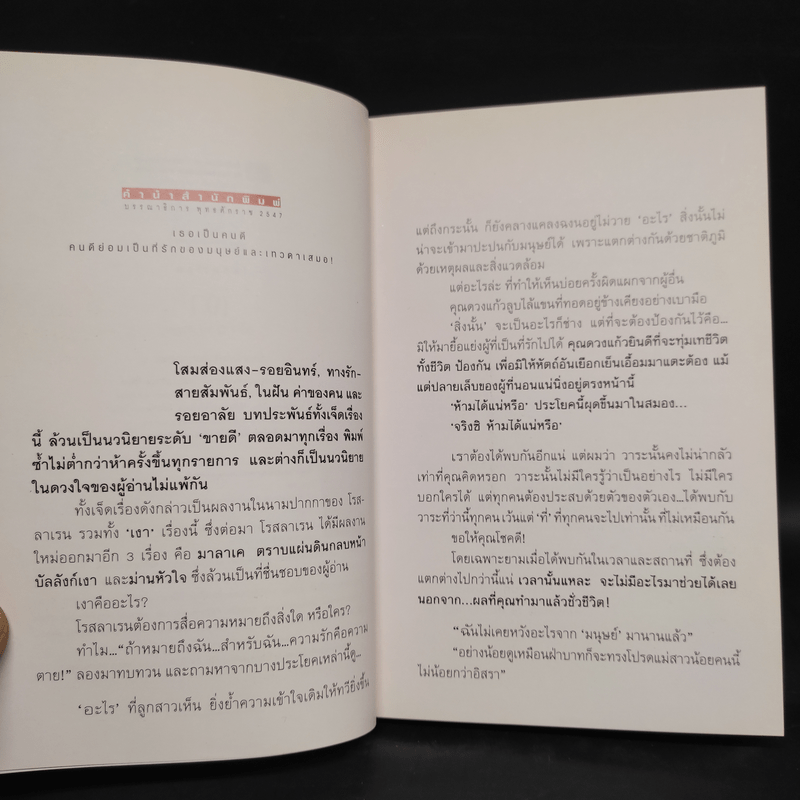 คำนำสำนักพิมพ์
บรรณาธิการ พุทธศักราช 2547
เธอเป็นคนดี
คนดีย่อมเป็นที่รักของมนุษย์และเทวดาเสมอ!
โสมส่องแสง-รอยอินทร์, ทางรัก-
สายสัมพันธ์, ในฝัน ค่าของคน และ
รอยอาลัย บทประพันธ์ทั้งเจ็ดเรื่อง
นี้ ล้วนเป็นนวนิยายระดับ ‘ขายดี’ ตลอดมาทุกเรื่อง พิมพ์
ซ้ำไม่ต่ำกว่าห้าครั้งขึ้นทุกรายการ และต่างก็เป็นนวนิยาย
ในดวงใจของผู้อ่านไม่แพ้กัน
ทั้งเจ็ดเรื่องดังกล่าวเป็นผลงานในนามปากกาของ โรส-
ลาเรน รวมทั้ง ‘เงา’ เรื่องนี้ ซึ่งต่อมา โรสลาเรน ได้มีผลงาน
ใหม่ออกมาอีก 3 เรื่อง คือ มาลาเค ตราบแผ่นดินกลบหน้า
บัลลังก์เงา และม่านหัวใจ ซึ่งล้วนเป็นที่ชื่นชอบของผู้อ่าน
เงาคืออะไร?
โรสลาเรนต้องการสื่อความหมายถึงสิ่งใด หรือใคร?
ทำไม...“ถ้าหมายถึงฉัน...สำหรับฉัน...ความรักคือความ
ตาย!” ลองมาทบทวน และถามหาจากบางประโยคเหล่านี้ดู...
‘อะไร’ ที่ลูกสาวเห็น ยิ่งย้ำความเข้าใจเดิมให้ทวียิ่งขึ้น
แต่ถึงกระนั้น ก็ยังคลางแคลงฉงนอยู่ไม่วาย ‘อะไร’ สิ่งนั้นไม่
น่าจะเข้ามาปะปนกับมนุษย์ได้ เพราะแตกต่างกันด้วยชาติภูมิ
ด้วยเหตุผลและสิ่งแวดล้อม
แต่อะไรล่ะ ที่ทำให้เห็นบ่อยครั้งผิดแผกจากผู้อื่น
คุณดวงแก้วลูบไล้แขนที่ทอดอยู่ข้างเคียงอย่างเบามือ
‘สิ่งนั้น’ จะเป็นอะไรก็ช่าง แต่ที่จะต้องป้องกันไว้คือ...
มิให้มายื้อแย่งผู้ที่เป็นที่รักไปได้ คุณดวงแก้วยินดีที่จะทุ่มเทชีวิต
ทั้งชีวิต ป้องกัน เพื่อมิให้หัตถ์อันเยือกเย็นเอื้อมมาแตะต้อง แม้
แต่ปลายเล็บของผู้ที่นอนแน่นิ่งอยู่ตรงหน้านี้
‘ห้ามได้แน่หรือ’ ประโยคนี้ผุดขึ้นมาในสมอง...
‘จริงซิ ห้ามได้แน่หรือ’
เราต้องได้พบกันอีกแน่ แต่ผมว่า วาระนั้นคงไม่น่ากลัว
เท่าที่คุณคิดหรอก วาระนั้นไม่มีใครรู้ว่าเป็นอย่างไร ไม่มีใคร
บอกใครได้ แต่ทุกคนต้องประสบด้วยตัวของตัวเอง...ได้พบกับ
วาระที่ว่านี้ทุกคน เว้นแต่ ‘ที่’ ที่ทุกคนจะไปเท่านั้น ที่ไม่เหมือนกัน
ขอให้คุณโชคดี!
โดยเฉพาะยามเมื่อได้พบกันในเวลาและสถานที่ ซึ่งต้อง
แตกต่างไปกว่านี้แน่ เวลานั้นแหละ จะไม่มีอะไรมาช่วยได้เลย
นอกจาก...ผลที่คุณทำมาแล้วชั่วชีวิต!
“ฉันไม่เคยหวังอะไรจาก ‘มนุษย์’ มานานแล้ว”
“อย่างน้อยดูเหมือนฝ่าบาทก็จะทรงโปรดแม่สาวน้อยคนนี้
ไม่น้อยกว่าอิสรา”